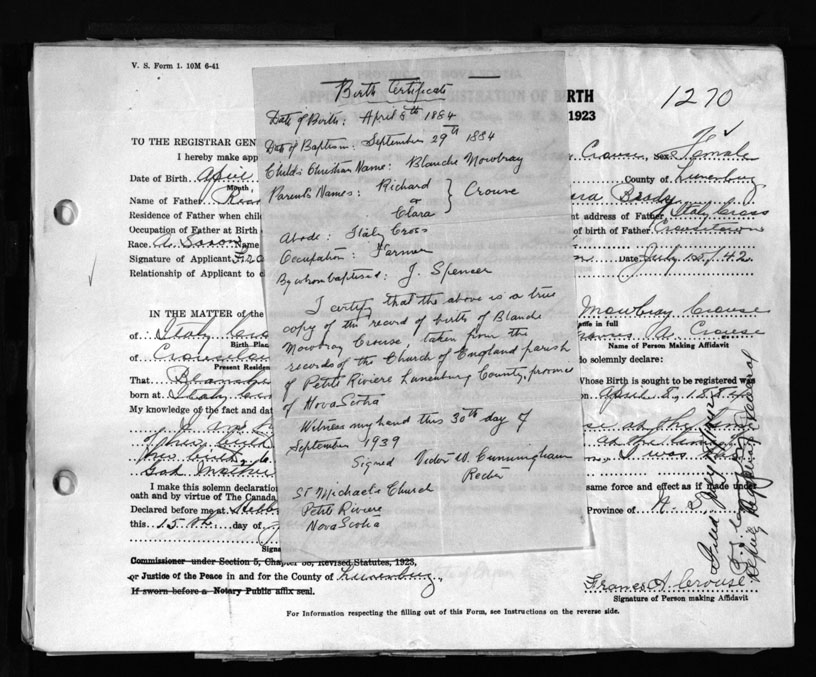 V. S. Form 1. 10M 6-41
BIRTH
1270
1923
Birth Certificate
Date of Birth: April 8th 1884
Date of Baptism: September 29th 1884
Child's Christian Name: Blanche Mowbray
Parents Names: Richard
or
Clara
} Crouse
Abode: Italy Cross
Occupation: Farmer
By whom baptised: J. Spencer
I certify that the above is a true
copy of the record of births of Blanche
Mowbray Crouse, taken from the
records of the Church of England parish
of Petite Riviere Lunenburg County, province
of Nova Scotia
Witness my hand this 30th day of
September 1939
Signed Victor W. Cunningham
Rector
St Michael's Church
Petite Riviere
Nova Scotia
TO THE REGISTRAR GEN
I hereby make app
Crouse, Sex Female
Date of Birth April
Month
County of Lunenburg
Name of Father
Residence of Father when chil
nt address of Father, Italy Cross
Occupation of Father at Birth
of birth of Father Crousetown
Race A. Saxon Name
Signature of Applicant
Date July 15, /42
Relationship of Applicant to c
IN THE MATTER of the
Mowbray Crouse
ame in full
of Italy Cross
Birth Plac
Francis A. Crouse
Name of Person Making Affidavit
of Crousetown
Present Residen
do solemnly declare:
That Blanche
Whose Birth is sought to be registered was
born at Italy Cross
on April 8, 1884
My knowledge of the fact and dat
I was
God Mother
I make this solemn declaration
same force and effect as if made under
oath and by virtue of The Canada
Declared before me at Hebb
Province of N. S.
this 15th day of
Signa
Commissioner under Section 5, Chapter 38, Revised Statutes, 1923,
or Justice of the Peace in and for the County of Lunenburg,
If sworn before a Notary Public affix seal.
Francis A. Crouse
Signature of Person making Affidavit
For Information respecting the filling out of this Form, see Instructions on the reverse side.
Deputy Registrar General